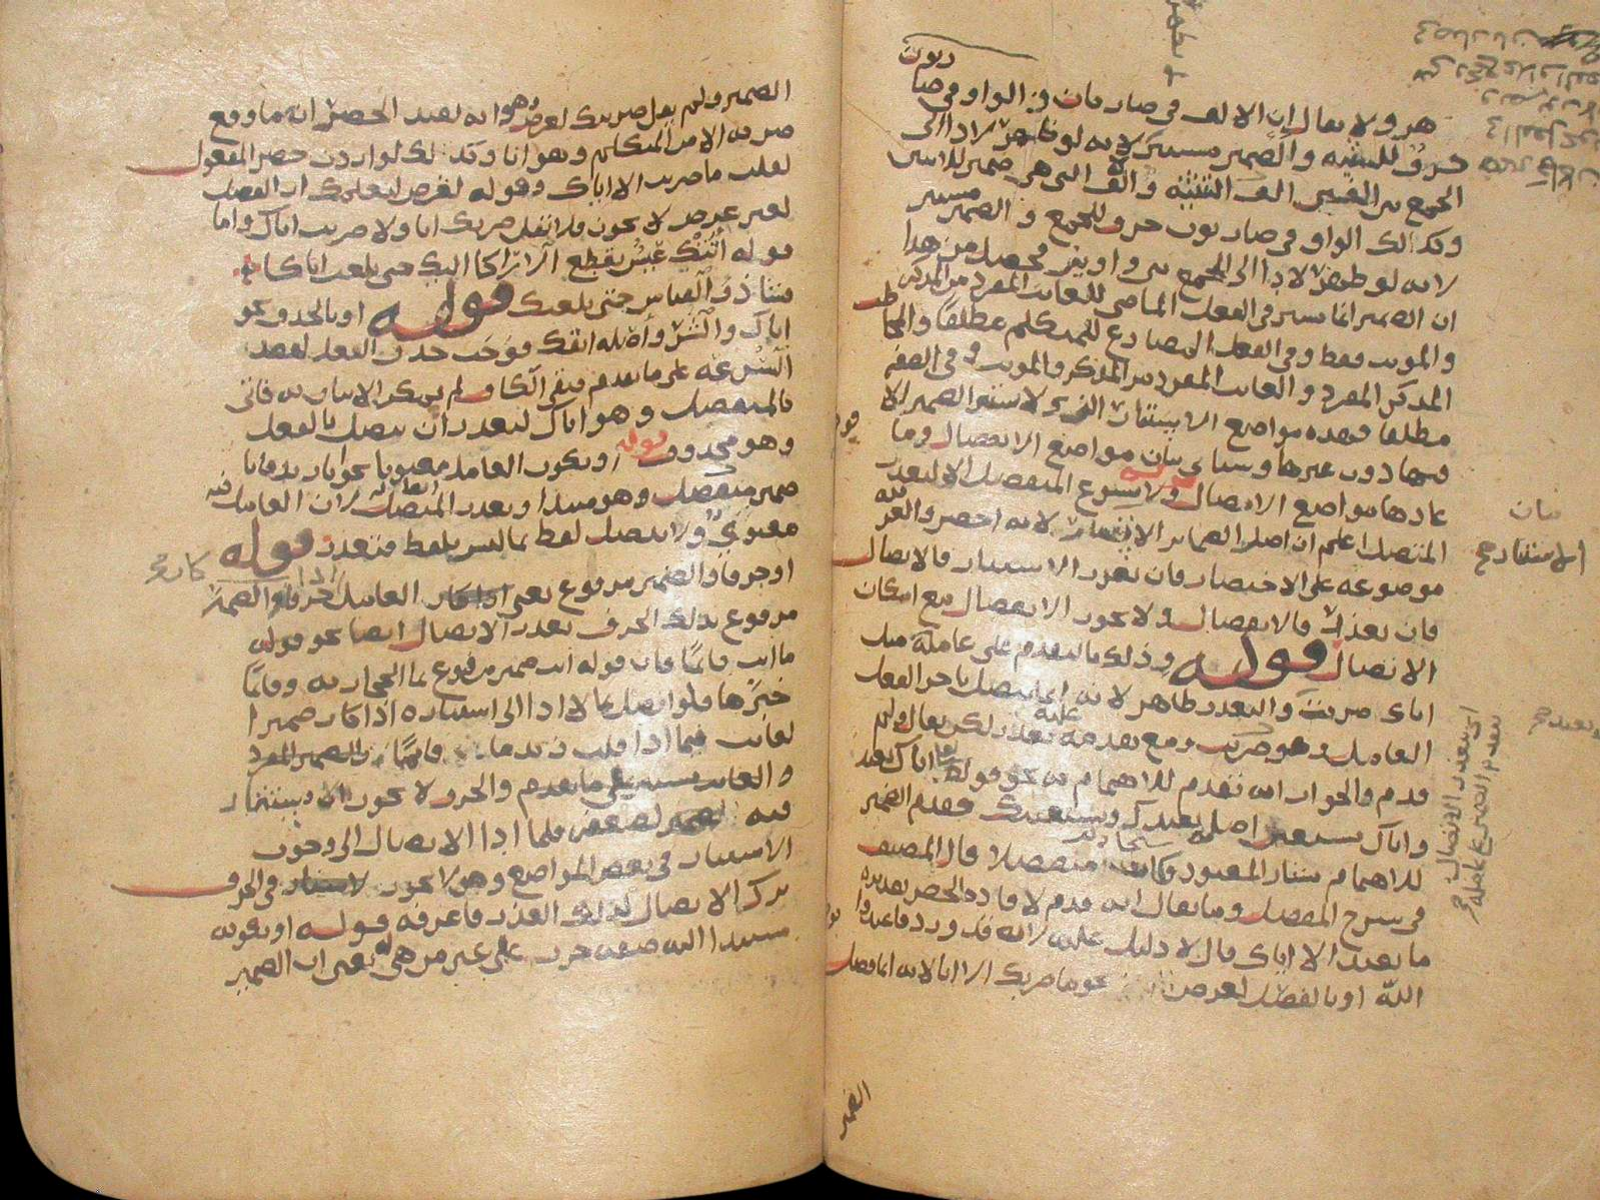 هو ولا يقال ان الالف في ضاربان والواو في ضاربون
حروف للتثنية والضمير مستتر لانه لو ظهر لادا الى
الجمع بين الفين الف التثنية والالف التي هي ضمير للاثنين
وكذلك الواو في ضاربون حرف للجمع والضمير مستتر
لانه لو ظهر لادا الى الجمع بين واوين فحصل من هذا
ان الضمير انما يستتر في الفعل الماضي للغائب المفرد من المذكر
والمونث فقط وفي الفعل المضارع للمتكلم مطلقا والمخاطب
المذكر المفرد والغائب المفرد من المذكر والمونث وفي الصفة
مطلقا فهذه مواضع الاستتار التي لا يستتر الضمير الا
فيها دون غيرها وسياتي بيان مواضع الانفصال وما
عداها مواضع الاتصال قوله ولا يسوغ المنفصل الا لتعذر
المتصل اعلم ان اصل الضماير الاستتار لانه اخصر
موضوعه على الاختصار فان تعذر الاستتار فالاتصال
فان تعذر فالانفصال ولا يجوز الانفصال مع امكان
الاتصال قوله وذلك بالتقدم على عامله مثل
اياك ضربت والتعذر ظاهر لانه انما يتصل باخر الفعل
العامل وهو ضربت ومع تقدمه عليه تعذر لكن يقال ولم
قدم والجواب انه تقدم للاهتمام به نحو قوله تعالى اياك نعبد
واياك نستعين اصله نعبدك ونستعينك فقدم الضمير
للاهتمام بشان المعبود سبحانه فكان منفصلا وقال المصنف
في شرح المفصل وما يقال انه قدم لافادة الحصر تقديره
ما نعبد الا اياك قال لا دليل عليه لانه قد ورد فاعبد
الله او بالفصل لغرض نحو ما ضربك الا انا لانه انما فصل
الضمير
بيان
الاستتار صح
اي تعذر الاتصال
تقدم الضمير على عامله صح
الضمير ولم يقل ضربتك لغرض وهو انه لقصد الحصر انه ما وقع
ضربه الا من المتكلم وهو انا وكذلك لو اردت حصر المفعول
لقلت ما ضربت الا اياك وقوله لغرض ليعلمك ان الفصل
لغير غرض لا يجوز فلا تقل ضربك انا ولا ضربت اياك واما
قوله اتتك عيس تقطع الاراكا اليك حتى بلغت اياكا
فشاذ والقياس حتى بلغتك قوله او بالحذف نحو
اياك والشر واصله اتقك فوجب حذف الفعل لقصد
السرعة على ما تقدم فبقي الكاف ولم يمكن الاتيان به فاتي
بالمنفصل وهو اياك لتعذر ان يتصل بالفعل
وهو محذوف قوله او يكون العامل معنويا نحو انا زيد فانا
ضمير منفصل وهو مبتدا وتعذر المتصل لان العامل فيه
معنوي ولا يتصل لفظ بما ليس بلفظ فتعذر قوله
او حرفا والضمير مرفوع يعني اذا كان العامل حرفا والضمير
مرفوع بذلك الحرف تعذر الاتصال ايضا نحو قوله
ما انت قائما فان قوله انت ضمير مرفوع بما الحجازيه وقائما
خبرها فلو اتصل بما لادا الى استتاره اذا كان ضميرا
لغائب فيما اذا قلت زيد ما قائما والضمير المفرد
والغائب يستتر على ما تقدم والحرف لا يجوز ان يستتر
فيه لضعفه فلما ادا الاتصال الى وجوب
الاستتار في بعض المواضع وهو لا يجوز في الحرف
ترك الاتصال لذلك العذر فاعرفه قوله او بكونه
مسندا اليه صفة جرت على غير من هي له يعني ان الضمير